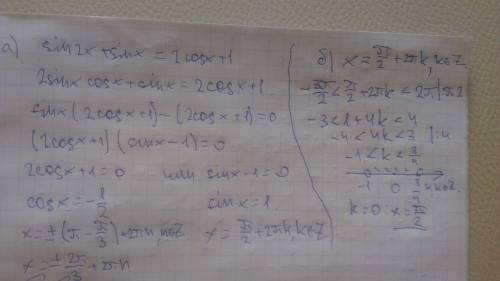 а) sin2x + sinx = 2cosx + 1
2sinx cosx + sinx = 2cosx + 1
sinx (2cosx + 1) - (2cosx + 1) = 0
(2cosx + 1) (sinx - 1) = 0
2cosx + 1 = 0 или sinx - 1 = 0
cosx = -1/2 sinx = 1
x = ± (π - π/3) + 2πn, n∈Z x = π/2 + 2πk, k∈Z
x = ± 2π/3 + 2πn
б) x = π/2 + 2πk, k∈Z
< π/2 + 2πk < 2π
-3 < 1 + 4k < 4
-4 < 4k < 3 |:4
-1 < k < 3/4
-1 0 3/4 k∈Z
k = 0 x = π/2